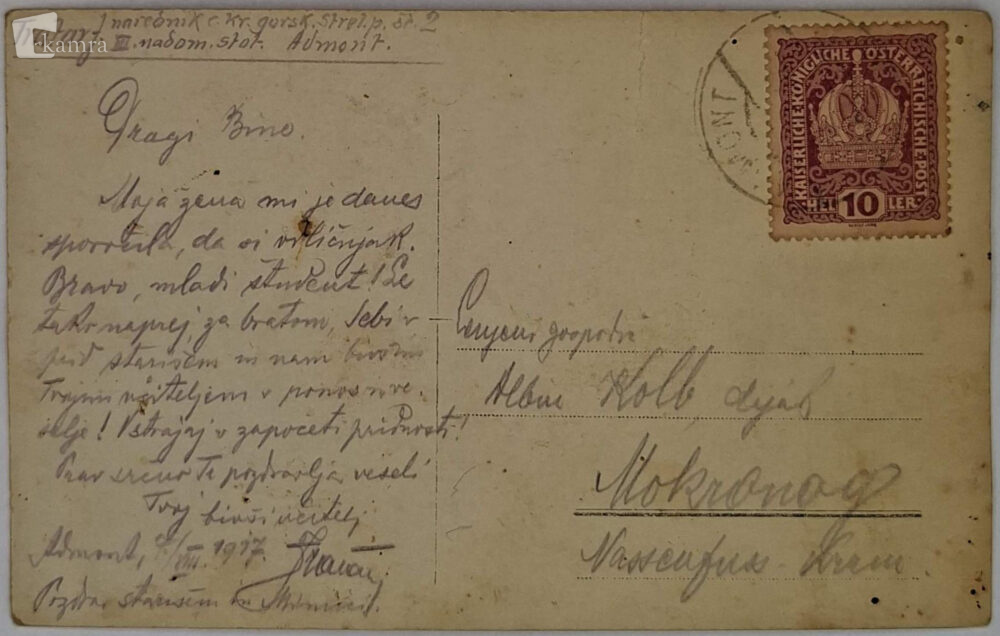 narednik c. kr. gorsk. strel. p. št. 2
III. nadom. stot. Admont.
kamra
Dragi Bino.
Moja žena mi je danes
sporočila, da si odličnjak.
Bravo, mladi študent! Le
tako naprej, za bratom, Sebi v
prid starišem in nam bivšim
Tvojim učiteljem v ponos in ve-
selje! Vstrajaj v započeti pridnosti!
Prav srčno Te pozdravlja veseli
Tvoj bivši učitelj
Admont, /VII. 1917.
Pozdrav starišem in
KAISERLICHE KÖNIGLICHE ÖSTERREICHISCHE POST
HELLER
10
MONT
Cenjeni gospodič
Albin Kolb, dijak
Mokronog
Nassenfuss Krain.